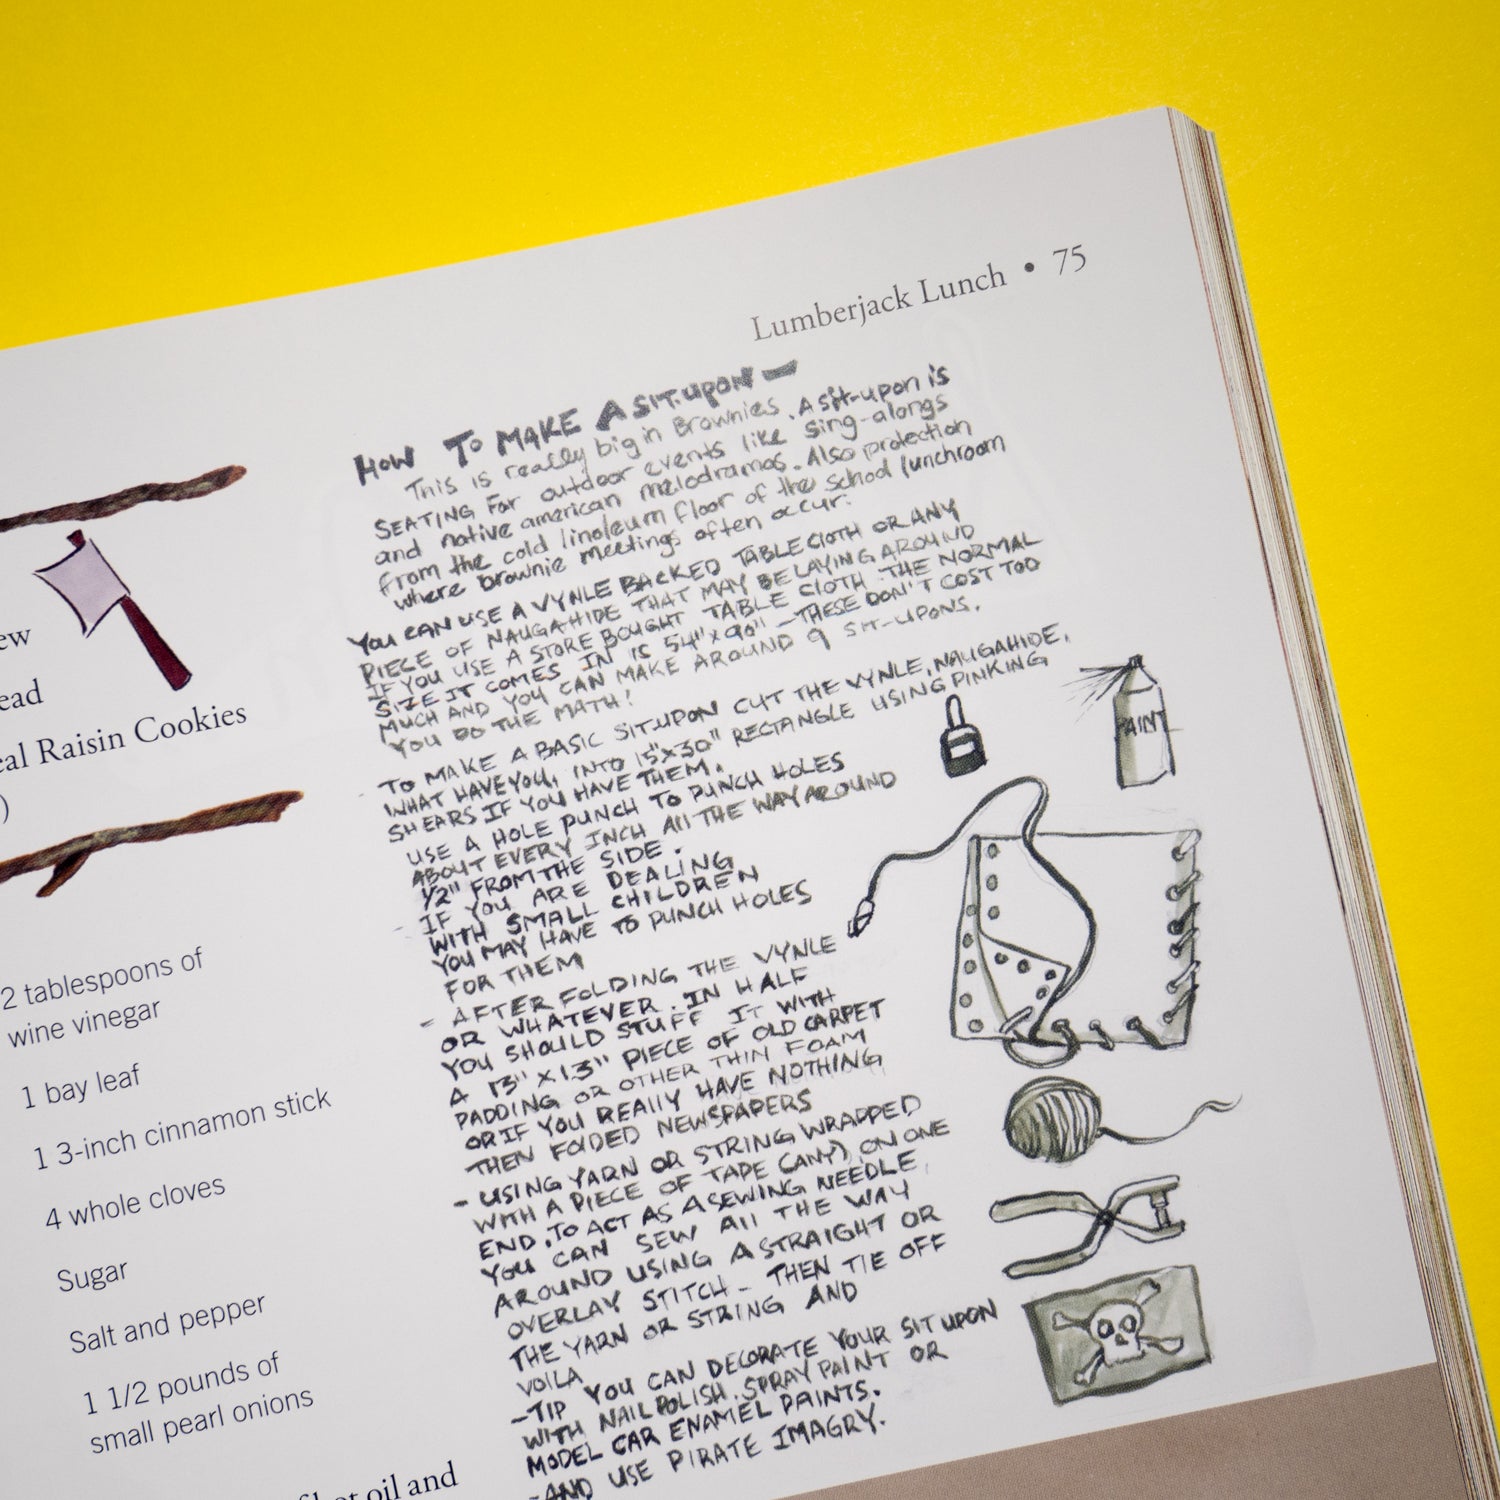 Lumberjack Lunch • 75
HOW TO MAKE A SIT-UPON —
This is really big in Brownies. A sit-upon is
SEATING For outdoor events like sing-alongs
and native american melodramas. Also protection
from the cold linoleum floor of the school lunchroom
where brownie meetings often occur.
YOU CAN USE A VYNLE BACKED TABLE CLOTH OR ANY
PIECE OF NAUGAHIDE THAT MAY BE LAYING AROUND
IF YOU USE A STORE BOUGHT TABLE CLOTH THE NORMAL
SIZE IT COMES IN IS 54" X 90" – THESE DON'T COST TOO
MUCH AND YOU CAN MAKE AROUND 9 SIT-UPONS.
YOU DO THE MATH!
TO MAKE A BASIC SIT-UPON CUT THE VYNLE, NAUGAHIDE,
WHAT HAVE YOU, INTO 15"X30" RECTANGLE USING PINKING
SHEARS IF YOU HAVE THEM.
USE A HOLE PUNCH TO PUNCH HOLES
ABOUT EVERY INCH All THE WAY AROUND
1/2" FROM THE SIDE.
- IF YOU ARE DEALING
WITH SMALL CHILDREN
YOU MAY HAVE TO PUNCH HOLES
FOR THEM
- AFTER FOLDING THE VYNLE
OR WHATEVER. IN HALF
YOU SHOULD STUFF IT WITH
A 13" X 13" PIECE OF OLD CARPET
PADDING OR OTHER THIN FOAM
OR IF YOU REALLY HAVE NOTHING
THEN FOLDED NEWSPAPERS
- USING YARN OR STRING WRAPPED
WITH A PIECE OF TAPE (ANY) ON ONE
END. TO ACT AS A SEWING NEEDLE
YOU CAN SEW All THE WAY
AROUND USING A STRAIGHT OR
OVERLAY STITCH – THEN TIE OFF
THE YARN OR STRING AND
VOILA
-TIP YOU CAN DECORATE YOUR SIT UPON
WITH NAIL POLISH. SPRAY PAINT OR
MODEL CAR ENAMEL PAINTS.
-AND USE PIRATE IMAGRY.
PAINT
ew
ead
eal Raisin Cookies
)
2 tablespoons of
wine vinegar
1 bay leaf
1 3-inch cinnamon stick
4 whole cloves
Sugar
Salt and pepper
1 1/2 pounds of
small pearl onions
oil and